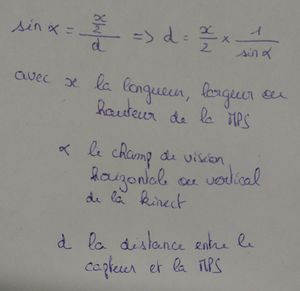 sin α = (x/2)/d => d = x/2 × 1/sin α
avec x la longueur, largeur ou
hauteur de la MPS
α le champ de vision
horizontale ou vertical
de la kinect
d la distance entre le
capteur et la MPS